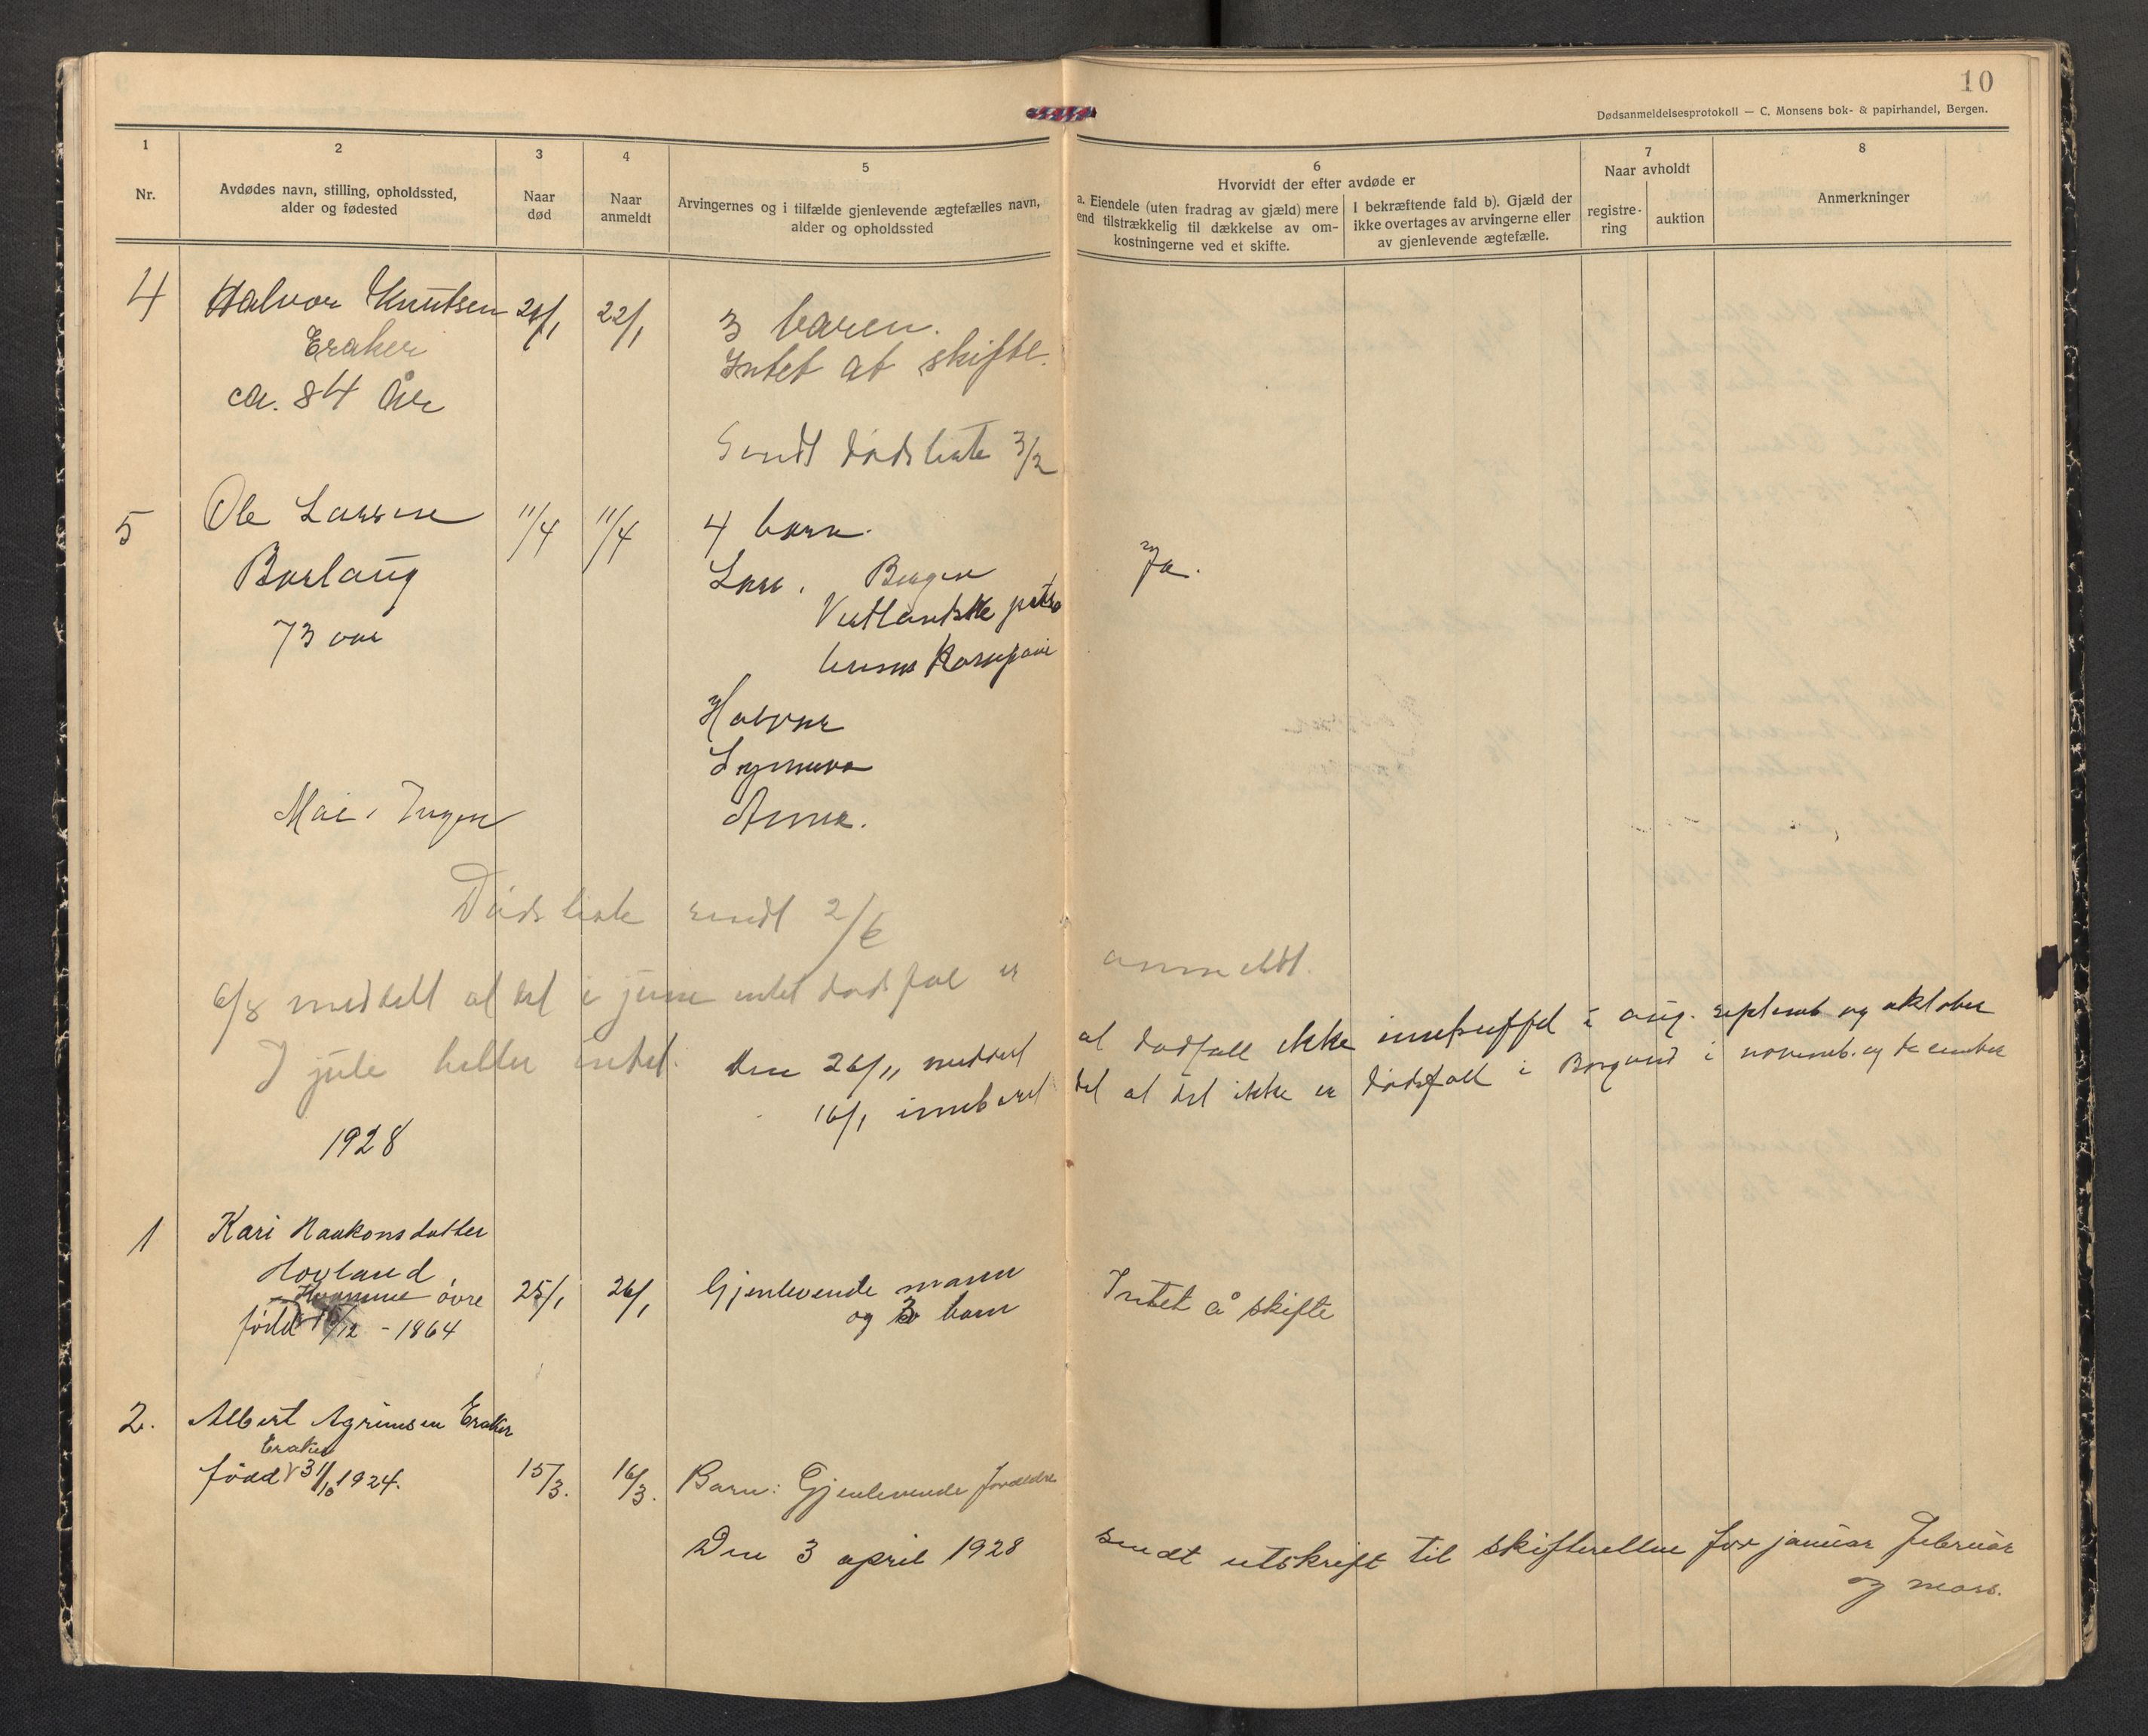 10
Dødsanmeldelsesprotokoll — C. Monsens bok- & papirhandel, Bergen.
1
2
3
4
5
6
7
8
Nr.
Avdødes navn, stilling, opholdssted,
alder og fødested
Naar
død
Naar
anmeldt
Arvingernes og i tilfælde gjenlevende ægtefælles navn,
alder og opholdssted
Hvorvidt der efter avdøde er
a. Eiendele (uten fradrag av gjæld) mere
end tilstrækkelig til dækkelse av om-
kostningerne ved et skifte.
I bekræftende fald b). Gjæld der
ikke overtages av arvingerne eller
av gjenlevende ægtefælle.
Naar avholdt
registre-
ring
auktion
Anmerkninger
4 Halvor Knutsen 21/1 22/1 3 baren.
Eraker Intet at skifte.
ca. 84 år
Sendt dødsliste 3/2
5 Ole Larsen 11/4 11/4 4 born.
Borlaug Lars. Bergen Ja.
73 aar Vestlandske petro
leums Kompani
Halvor
Synneva
Mai. Ingen Anna.
Dødsliste sendt 2/6
6/8 meddelt at det i june intet dødsfal er anmeldt.
I jule heller intet. den 26/11 meddelt at dødfall ikke inntruffet i aug. septemb og oktober
16/1 innberet det at det ikke er dødsfall i Borgund i novemb. og december
1928
1 Kari Haakonsdatter
Hovland,
øvre 25/1 26/1 Gjenlevende mann Intet å skifte
født /12 - 1864 og 3 barn
2. Albert Agrimsen Eraker
Eraker
fødd 31/10 1924. 15/3. 16/3. Barn: Gjenlevende foreldre
Den 3 april 1928 sendt utskrift til skifteretten for januar februar
og mars.